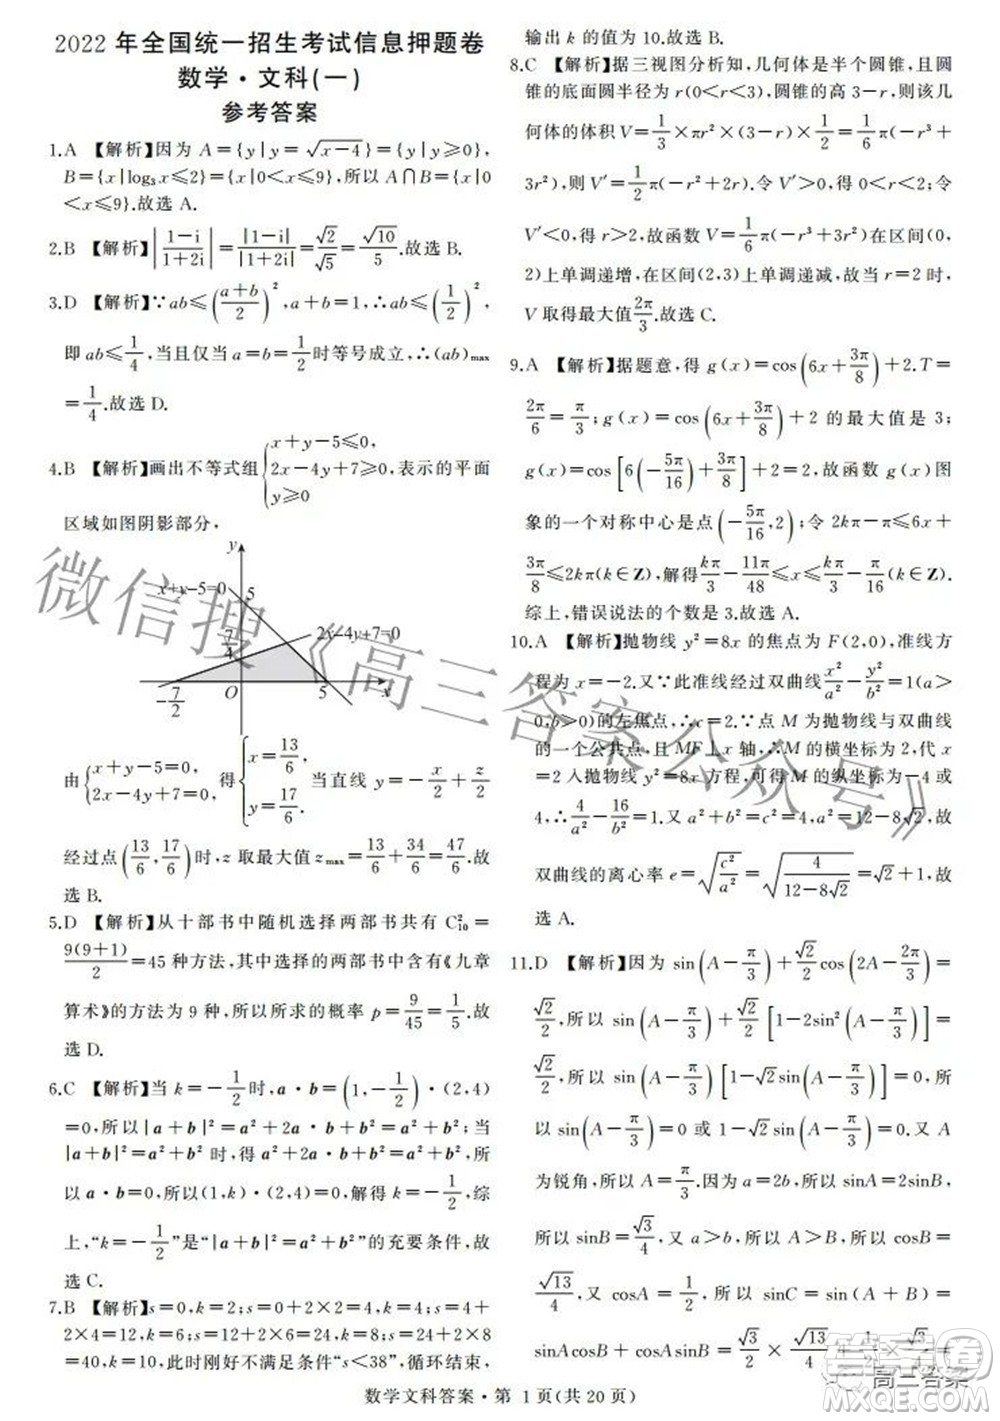 2022年全国统一招生考试信息押题卷
数学·文科(一)
参考答案
1.A 【解析】因为 A={y|y=√(x-4)}={y|y≥0},
B={x|log₃x≤2}={x|0<x≤9},所以 A∩B={x|0
<x≤9}.故选 A.
2.B 【解析】|(1-i)/(1+2i)|=|1-i|/|1+2i|=√2/√5=√10/5.故选 B.
3.D 【解析】∵ab≤((a+b)/2)²,a+b=1,∴ab≤(1/2)²,
即 ab≤1/4,当且仅当 a=b=1/2 时等号成立,∴(ab)max
=1/4.故选 D.
4.B 【解析】画出不等式组{x+y-5≤0, 2x-4y+7≥0, y≥0 表示的平面
区域如图阴影部分,
y
x+y-5=0
5
2x-4y+7=0
7/4
-7/2
O
5
x
由{x+y-5=0, 2x-4y+7=0, 得{x=13/6, y=17/6. 当直线 y=-x/2+z/2
经过点(13/6,17/6)时,z 取最大值 zmax=13/6+34/6=47/6.故
选 B.
5.D 【解析】从十部书中随机选择两部书共有 C²₁₀=
9(9+1)/2=45 种方法,其中选择的两部书包括《九章
算术》的方法为 9 种,所以所求的概率 p=9/45=1/5.故
选 D.
6.C 【解析】当 k=-1/2 时,a·b=(1,-1/2)·(2,4)
=0,所以|a+b|²=a²+2a·b+b²=a²+b²;当
|a+b|²=a²+b² 时,|a+b|²=a²+2a·b+b²,所
以 a·b=0,所以(1,k)·(2,4)=0,解得 k=-1/2,综
上,“k=-1/2”是“|a+b|²=a²+b²”的充要条件,故
选 C.
7.B 【解析】s=0,k=2;s=0+2×2=4,k=4;s=4+
2×4=12,k=6;s=12+2×6=24,k=8;s=24+2×8
=40,k=10,此时刚好不满足条件“s<38”,循环结束,
输出 k 的值为 10.故选 B.
8.C 【解析】据三视图分析知,几何体是半个圆锥,且圆
锥的底面圆半径为 r(0<r<3),圆锥的高 3-r,则该几
何体的体积 V=1/3×πr²×(3-r)×1/2=1/6π(-r³+
3r²),则 V′=1/2π(-r²+2r).令 V′>0,得 0<r<2,令
V′<0,得 r>2,故函数 V=1/6π(-r³+3r²)在区间(0,
2)上单调递增,在区间(2,3)上单调递减,故当 r=2 时,
V 取得最大值2π/3.故选 C.
9.A 【解析】据题意,得 g(x)=cos(6x+3π/8)+2.T=
2π/6=π/3;g(x)=cos(6x+3π/8)+2 的最大值是 3;
g(x)=cos[6(-5π/16)+3π/8]+2=2,故函数 g(x)图
象的一个对称中心是点(-5π/16,2);令 2kπ-π≤6x+
3π/8≤2kπ(k∈Z),解得kπ/3-11π/48≤x≤kπ/3-π/16(k∈Z).
综上,错误说法的个数是 3.故选 A.
10.A 【解析】抛物线 y²=8x 的焦点为 F(2,0),准线方
程为 x=-2.又∵此准线经过双曲线x²/a²-y²/b²=1(a>
0,b>0)的左焦点,∴c=2.∵点 M 为抛物线与双曲线
的一个公共点,且 MF⊥x 轴,∴M 的横坐标为 2,代
x=2 入抛物线 y²=8x 方程,可得 M 的纵坐标为-4 或
4,∴4/a²-16/b²=1.又 a²+b²=c²=4,a²=12-8√2,故
双曲线的离心率 e=√(c²/a²)=√(4/(12-8√2))=√2+1,故
选 A.
11.D 【解析】因为 sin(A-π/3)+√2/2cos(2A-2π/3)=
√2/2,所以 sin(A-π/3)+√2/2[1-2sin²(A-π/3)]=
√2/2,所以 sin(A-π/3)[1-√2sin(A-π/3)]=0,所
以 sin(A-π/3)=0 或 1-√2sin(A-π/3)=0.又 A
为锐角,所以 A=π/3.又 a=2b,所以 sinA=2sinB,
所以 sinB=√3/4,又 a>b,所以 A>B,所以 cosB=
√13/4,又 cosA=1/2,所以 sinC=sin(A+B)=
sinAcosB+cosAsinB=√3/2×
数学文科答案·第 1 页(共 20 页)
微信搜《高三答案公众号》
高三答案